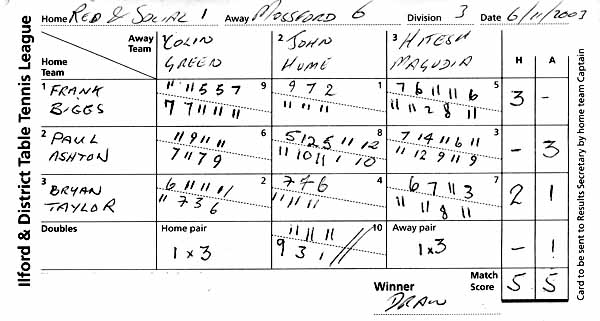 Home RED & SOCIAL 1 Away MOSSFORD 6 Division 3 Date 6/11/2003
Away Team
Home Team
1 COLIN GREEN
2 JOHN HUME
3 HITESH MAGUDIA
H A
1 FRANK 11 11 5 5 7 9 9 7 2 1 7 6 11 11 6 5 3 -
BIGGS 7 7 11 11 11 11 11 11 11 11 2 8 11
2 PAUL 11 9 11 11 6 5 12 5 11 12 8 7 14 11 6 11 3 - 3
ASHTON 7 11 7 9 11 10 11 1 10 11 12 9 11 9
3 BRYAN 6 11 11 11 2 7 7 6 4 6 7 11 3 7 2 1
TAYLOR 11 7 3 6 11 11 11 11 11 8 11
Doubles Home pair 11 11 11 10 Away pair
1 x 3 9 3 1 1 x 3 - 1
Winner DRAW Match Score 5 5
Ilford & District Table Tennis League
Card to be sent to Results Secretary by home team Captain